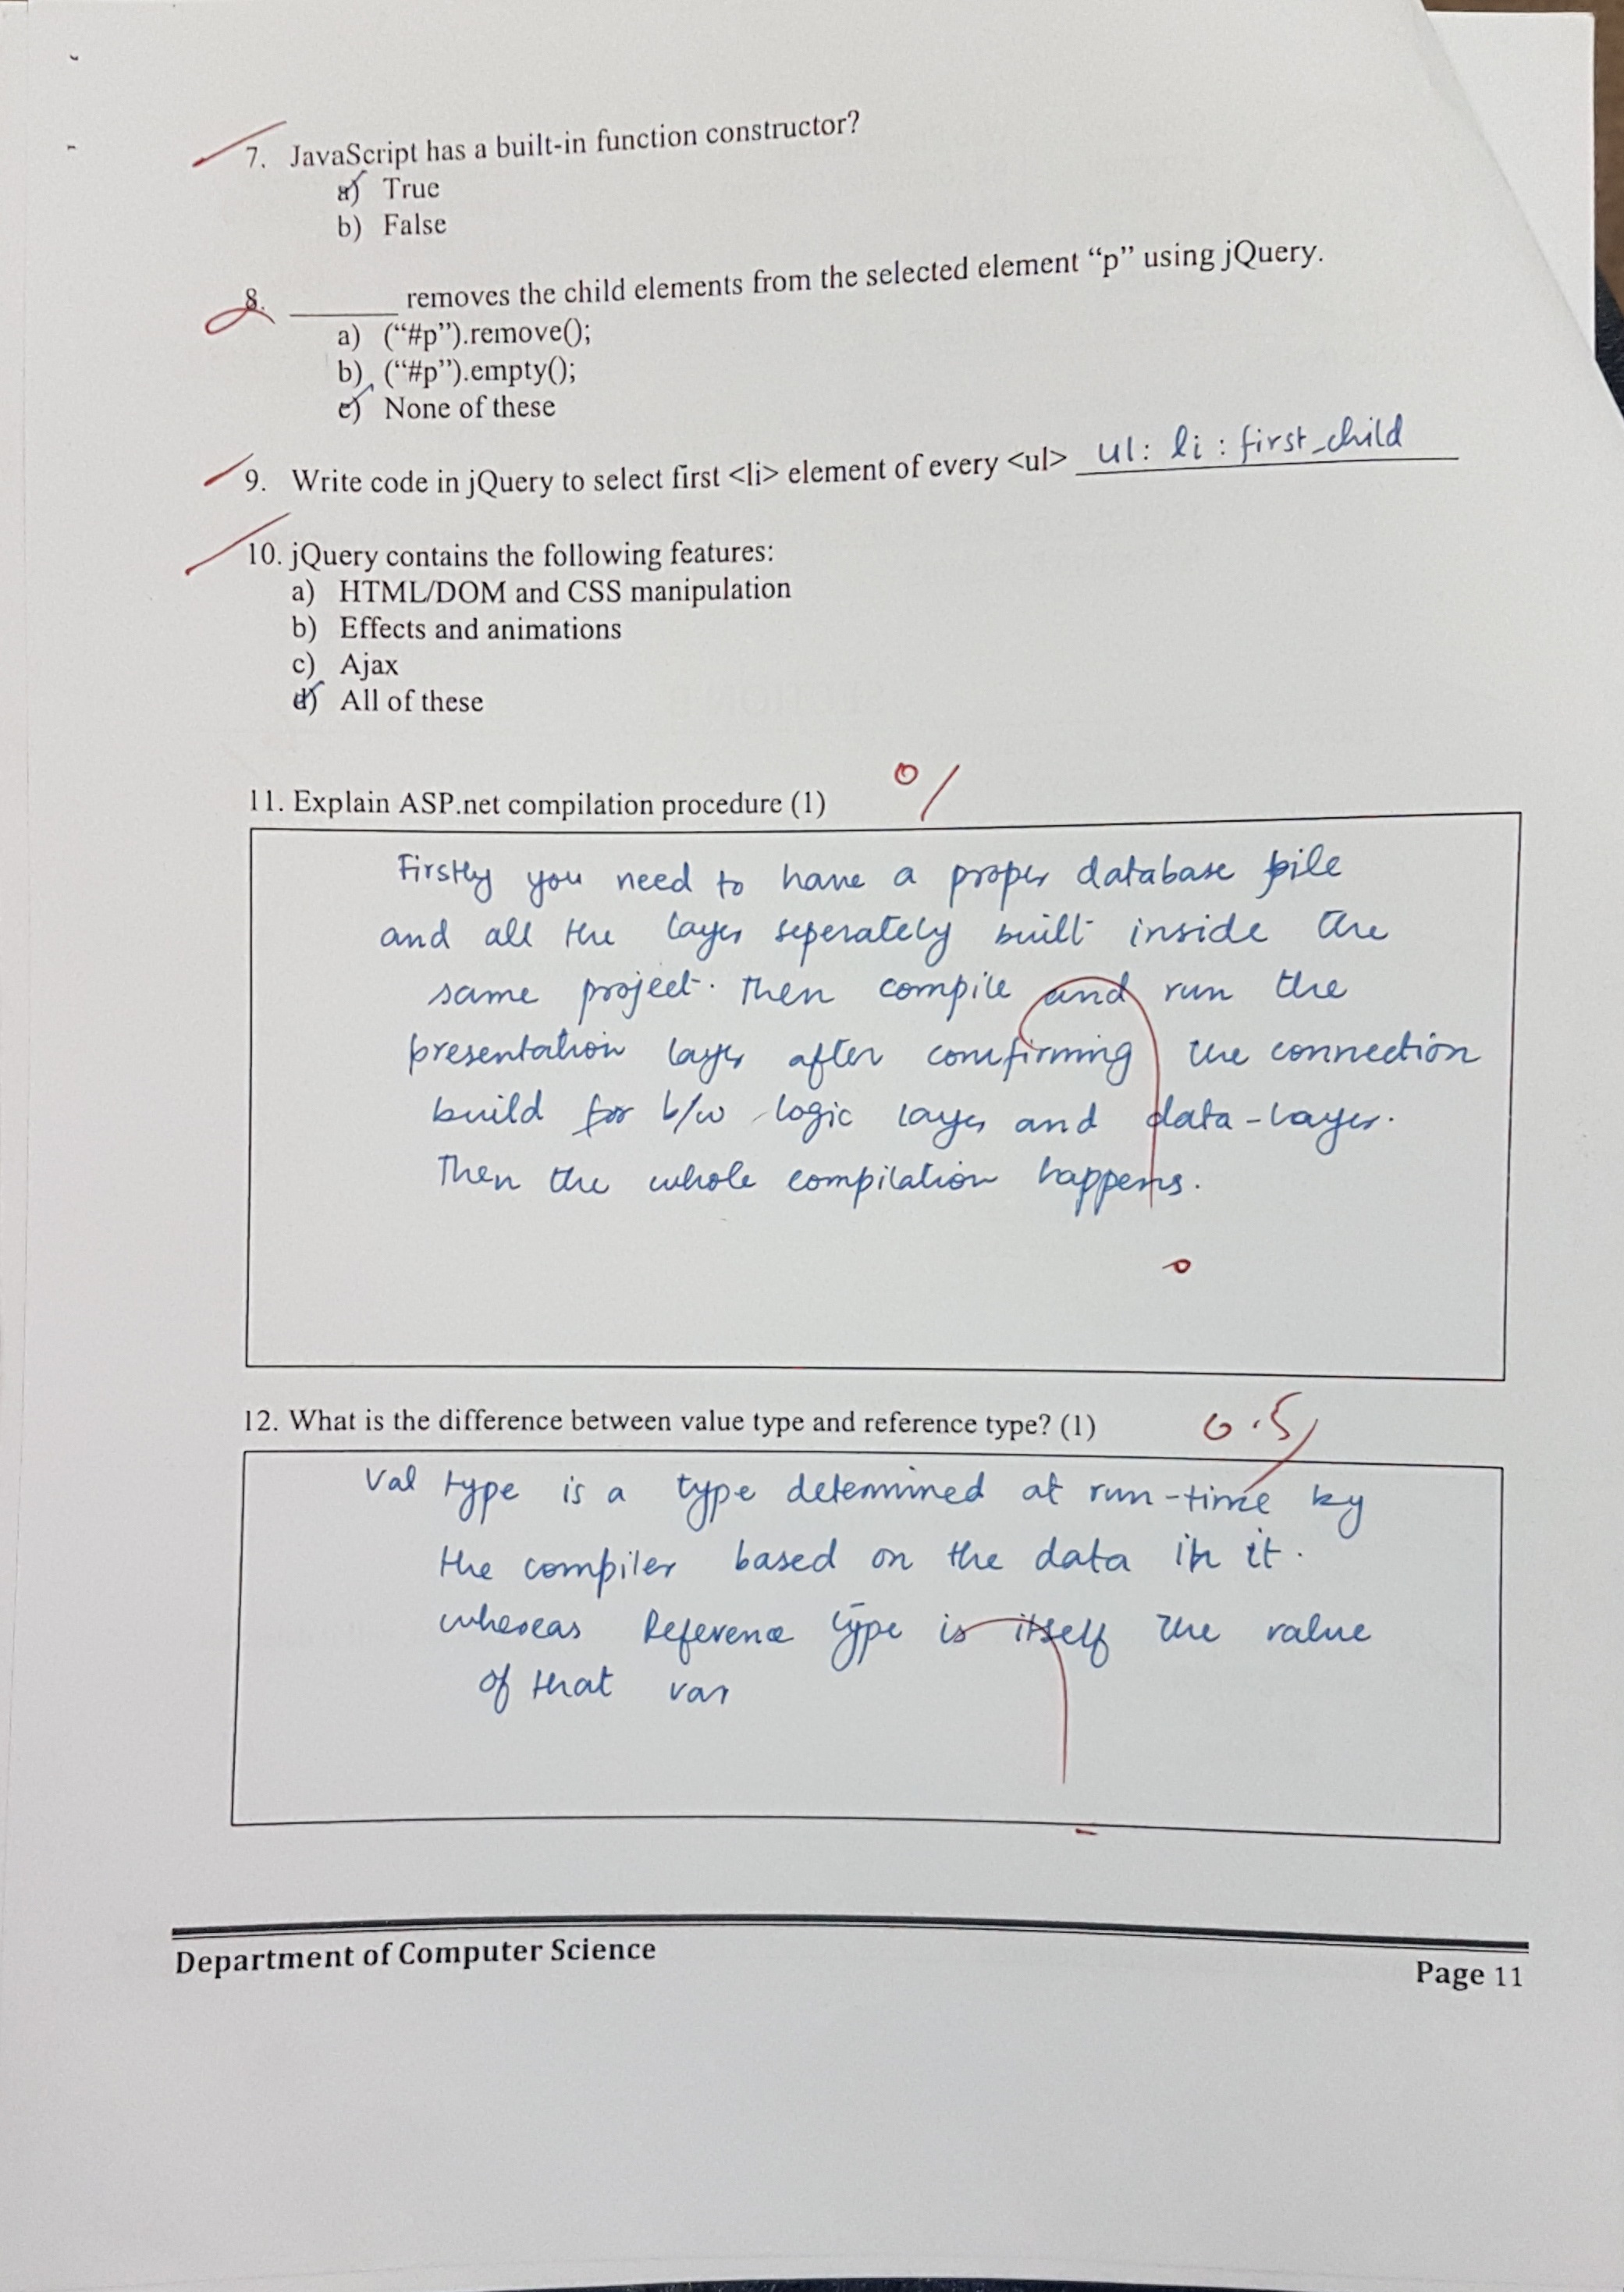 7. JavaScript has a built-in function constructor?
a) True
b) False
8. ________ removes the child elements from the selected element “p” using jQuery.
a) (“#p”).remove();
b) (“#p”).empty();
c) None of these
9. Write code in jQuery to select first <li> element of every <ul> ul: li : first_child
10. jQuery contains the following features:
a) HTML/DOM and CSS manipulation
b) Effects and animations
c) Ajax
d) All of these
0
11. Explain ASP.net compilation procedure (1)
Firstly you need to have a proper database file
and all the layer seperately built inside the
same project. Then compile and run the
presentation layer after comfirming the connection
build for b/w logic layer and data-layer.
Then the whole compilation happens.
0
12. What is the difference between value type and reference type? (1) 0.5
Val type is a type determined at run-time by
the compiler based on the data in it.
whereas Reference type is itself the value
of that var
Department of Computer Science
Page 11